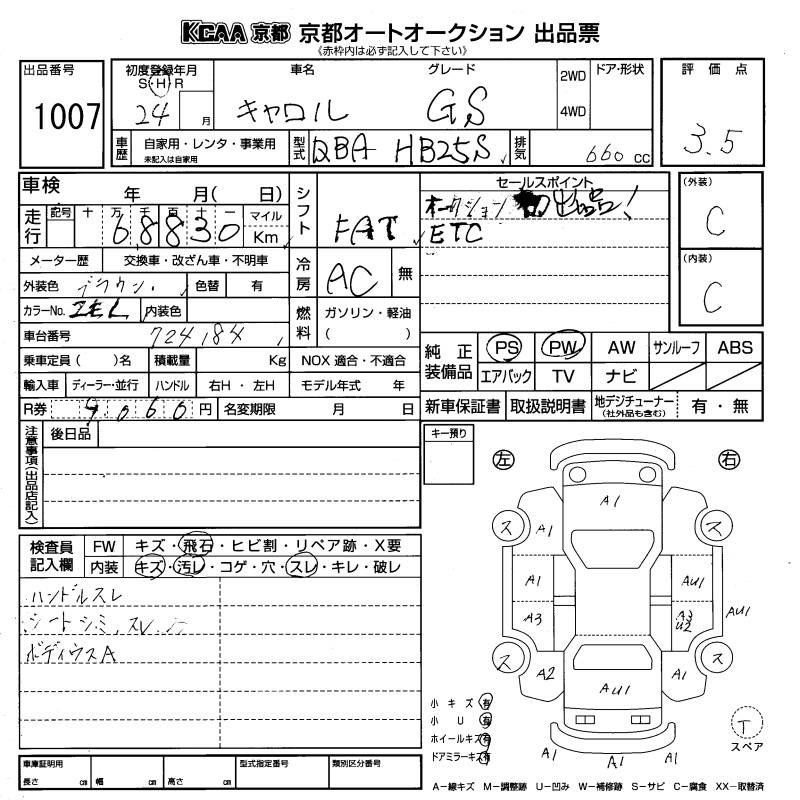 KCAA 京都 京都オートオークション 出品票
《赤枠内は必ず記入して下さい》
出品番号
1007
初度登録年月
S・H・R
24 月
車名
キャロル
グレード
GS
2WD
4WD
ドア・形状
評価点
3.5
車歴
自家用・レンタ・事業用
未記入は自家用
型式
QBA HB25S
排気
660 cc
車検 年 月( 日)
シフト
FAT
走行
記号 十 万 千 百 十 一
68830
マイル
Km
メーター歴
交換車・改ざん車・不明車
冷房
AC
無
外装色
ブラウン
色替
有
カラーNo.
ZEL
内装色
燃料
ガソリン・軽油
( )
車台番号
724184
乗車定員( )名
積載量
Kg
NOX 適合・不適合
輸入車
ディーラー・並行
ハンドル
右H・左H
モデル年式 年
R券
9060 円
名変期限 月 日
セールスポイント
オークション 初出品!
ETC
(外装)
C
(内装)
C
純正装備品
PS
PW
AW
サンルーフ
ABS
エアバック
TV
ナビ
新車保証書
取扱説明書
地デジチューナー
(社外品も含む)
有・無
注意事項(出品店記入)
後日品
キー預り
左
右
検査員記入欄
FW
キズ・飛石・ヒビ割・リペア跡・X要
内装
キズ・汚レ・コゲ・穴・スレ・キレ・破レ
ハンドルスレ
シートシミ、スレ
ボディウスA
A1
ス
A1
ス
A1
AU1
A3
A3
U2
AU1
ス
A2
AU1
A1
ス
A1
A1
A1
小キズ 有
小U 有
ホイールキズ 有
ドアミラーキズ 有
T
スペア
車庫証明用
長さ cm
幅 cm
高さ cm
型式指定番号
類別区分番号
A−線キズ M−調整跡 U−凹み W−補修跡 S−サビ C−腐食 XX−取替済